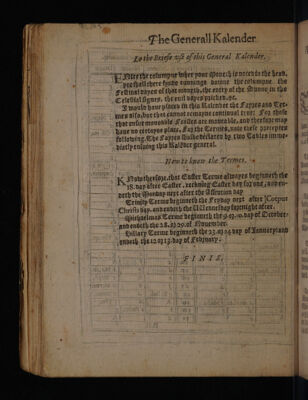 The Generall Kalender
To the Briefe use of this General Kalender.
ENter the columpne wher your moneth is noted in the head,
yee shall over finde runnings downe the columpne the
Festivall dayes of that moneth, the entry of the Sunne in the
Celestial signes, the evil dayes pricked, &c.
I would have placed in this Kalender the Fayres and Ter-
mes also, but that cannot remaine continual true: For those
that ensue moveable Festes are moveable, and therfore may
have no certayne place. For the Termes, note these preceptes
following. The Fayres shalbe declared by two Tables imme-
diatly ensuing this Kalender general.
How to know the Termes.
KNow therefore, that Easter Terme alwayes beginneth the
18. day after Easter, reckning Easter day for one, and en-
deth the Monday next after the Ascention day
Trinity Terme beginneth the Fryday next after Corpus
Christi day, and endeth the Wednesday fortnight after.
Michaelmas Terme beginneth the 9. or 10. day of October,
and endeth the 28. or 29. of November.
Hillary Terme beginneth the 23. or 24 day of January, and
endeth the 12. or 13. day of February.
FINIS.